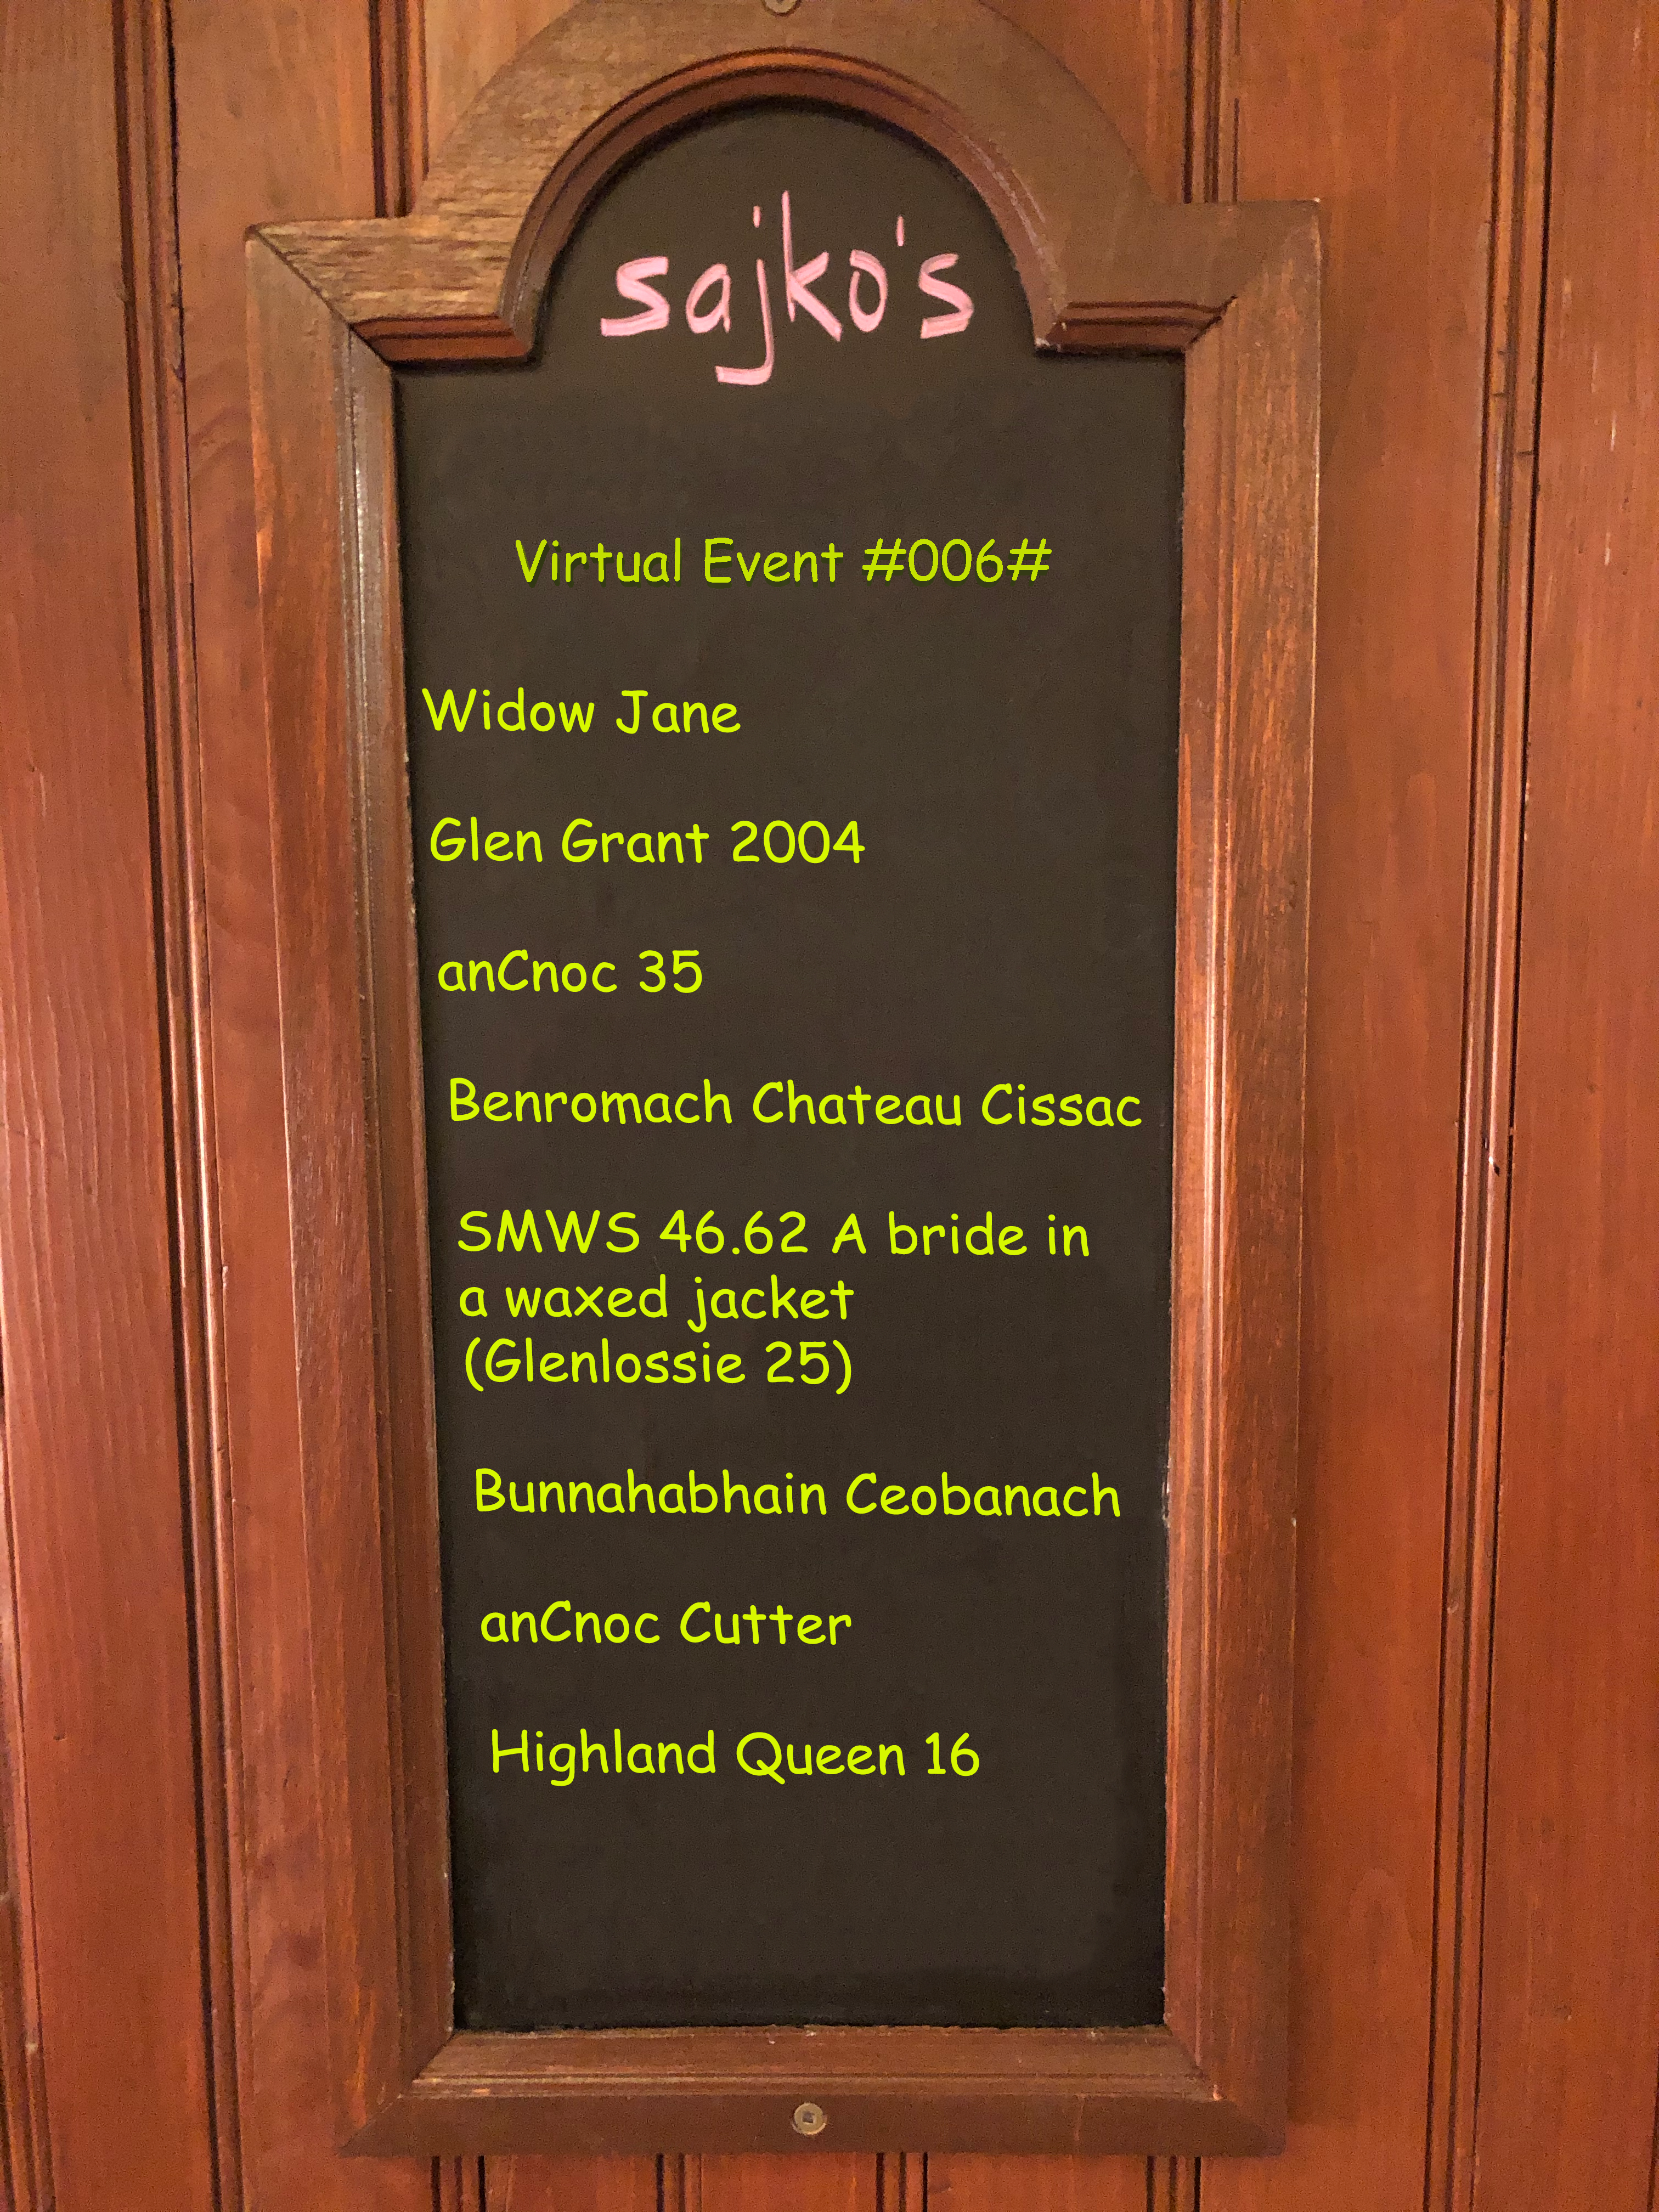 sajko's
Virtual Event #006#
Widow Jane
Glen Grant 2004
anCnoc 35
Benromach Chateau Cissac
SMWS 46.62 A bride in
a waxed jacket
(Glenlossie 25)
Bunnahabhain Ceobanach
anCnoc Cutter
Highland Queen 16